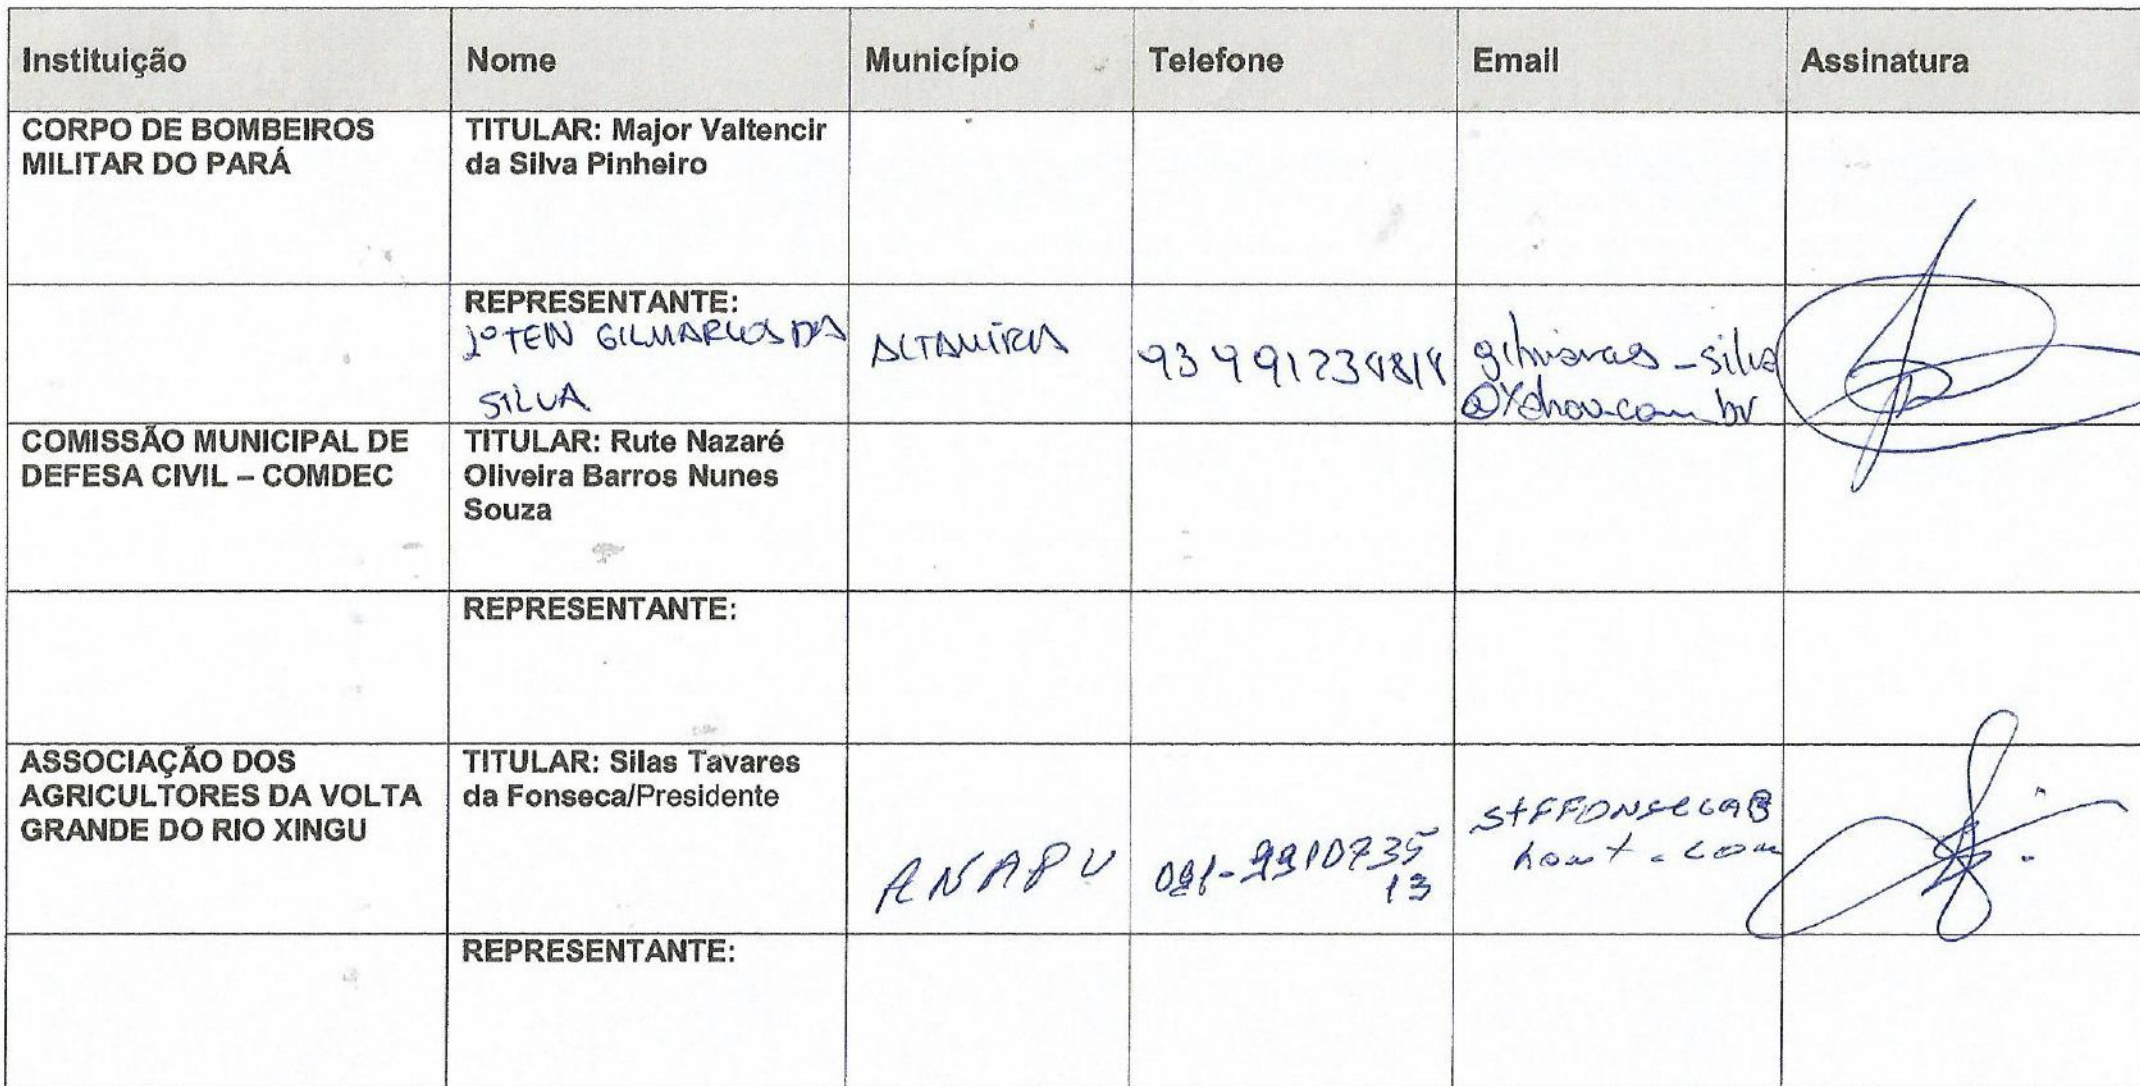 Instituição Nome Município Telefone Email Assinatura
CORPO DE BOMBEIROS
MILITAR DO PARÁ
TITULAR: Major Valtencir
da Silva Pinheiro
REPRESENTANTE:
1º TEN GILMARCOS DA
SILVA
ALTAMIRA
gilmarcos_silva
@Yahoo.com.br
COMISSÃO MUNICIPAL DE
DEFESA CIVIL – COMDEC
TITULAR: Rute Nazaré
Oliveira Barros Nunes
Souza
REPRESENTANTE:
ASSOCIAÇÃO DOS
AGRICULTORES DA VOLTA
GRANDE DO RIO XINGU
TITULAR: Silas Tavares
da Fonseca/Presidente
ANAPU
REPRESENTANTE: